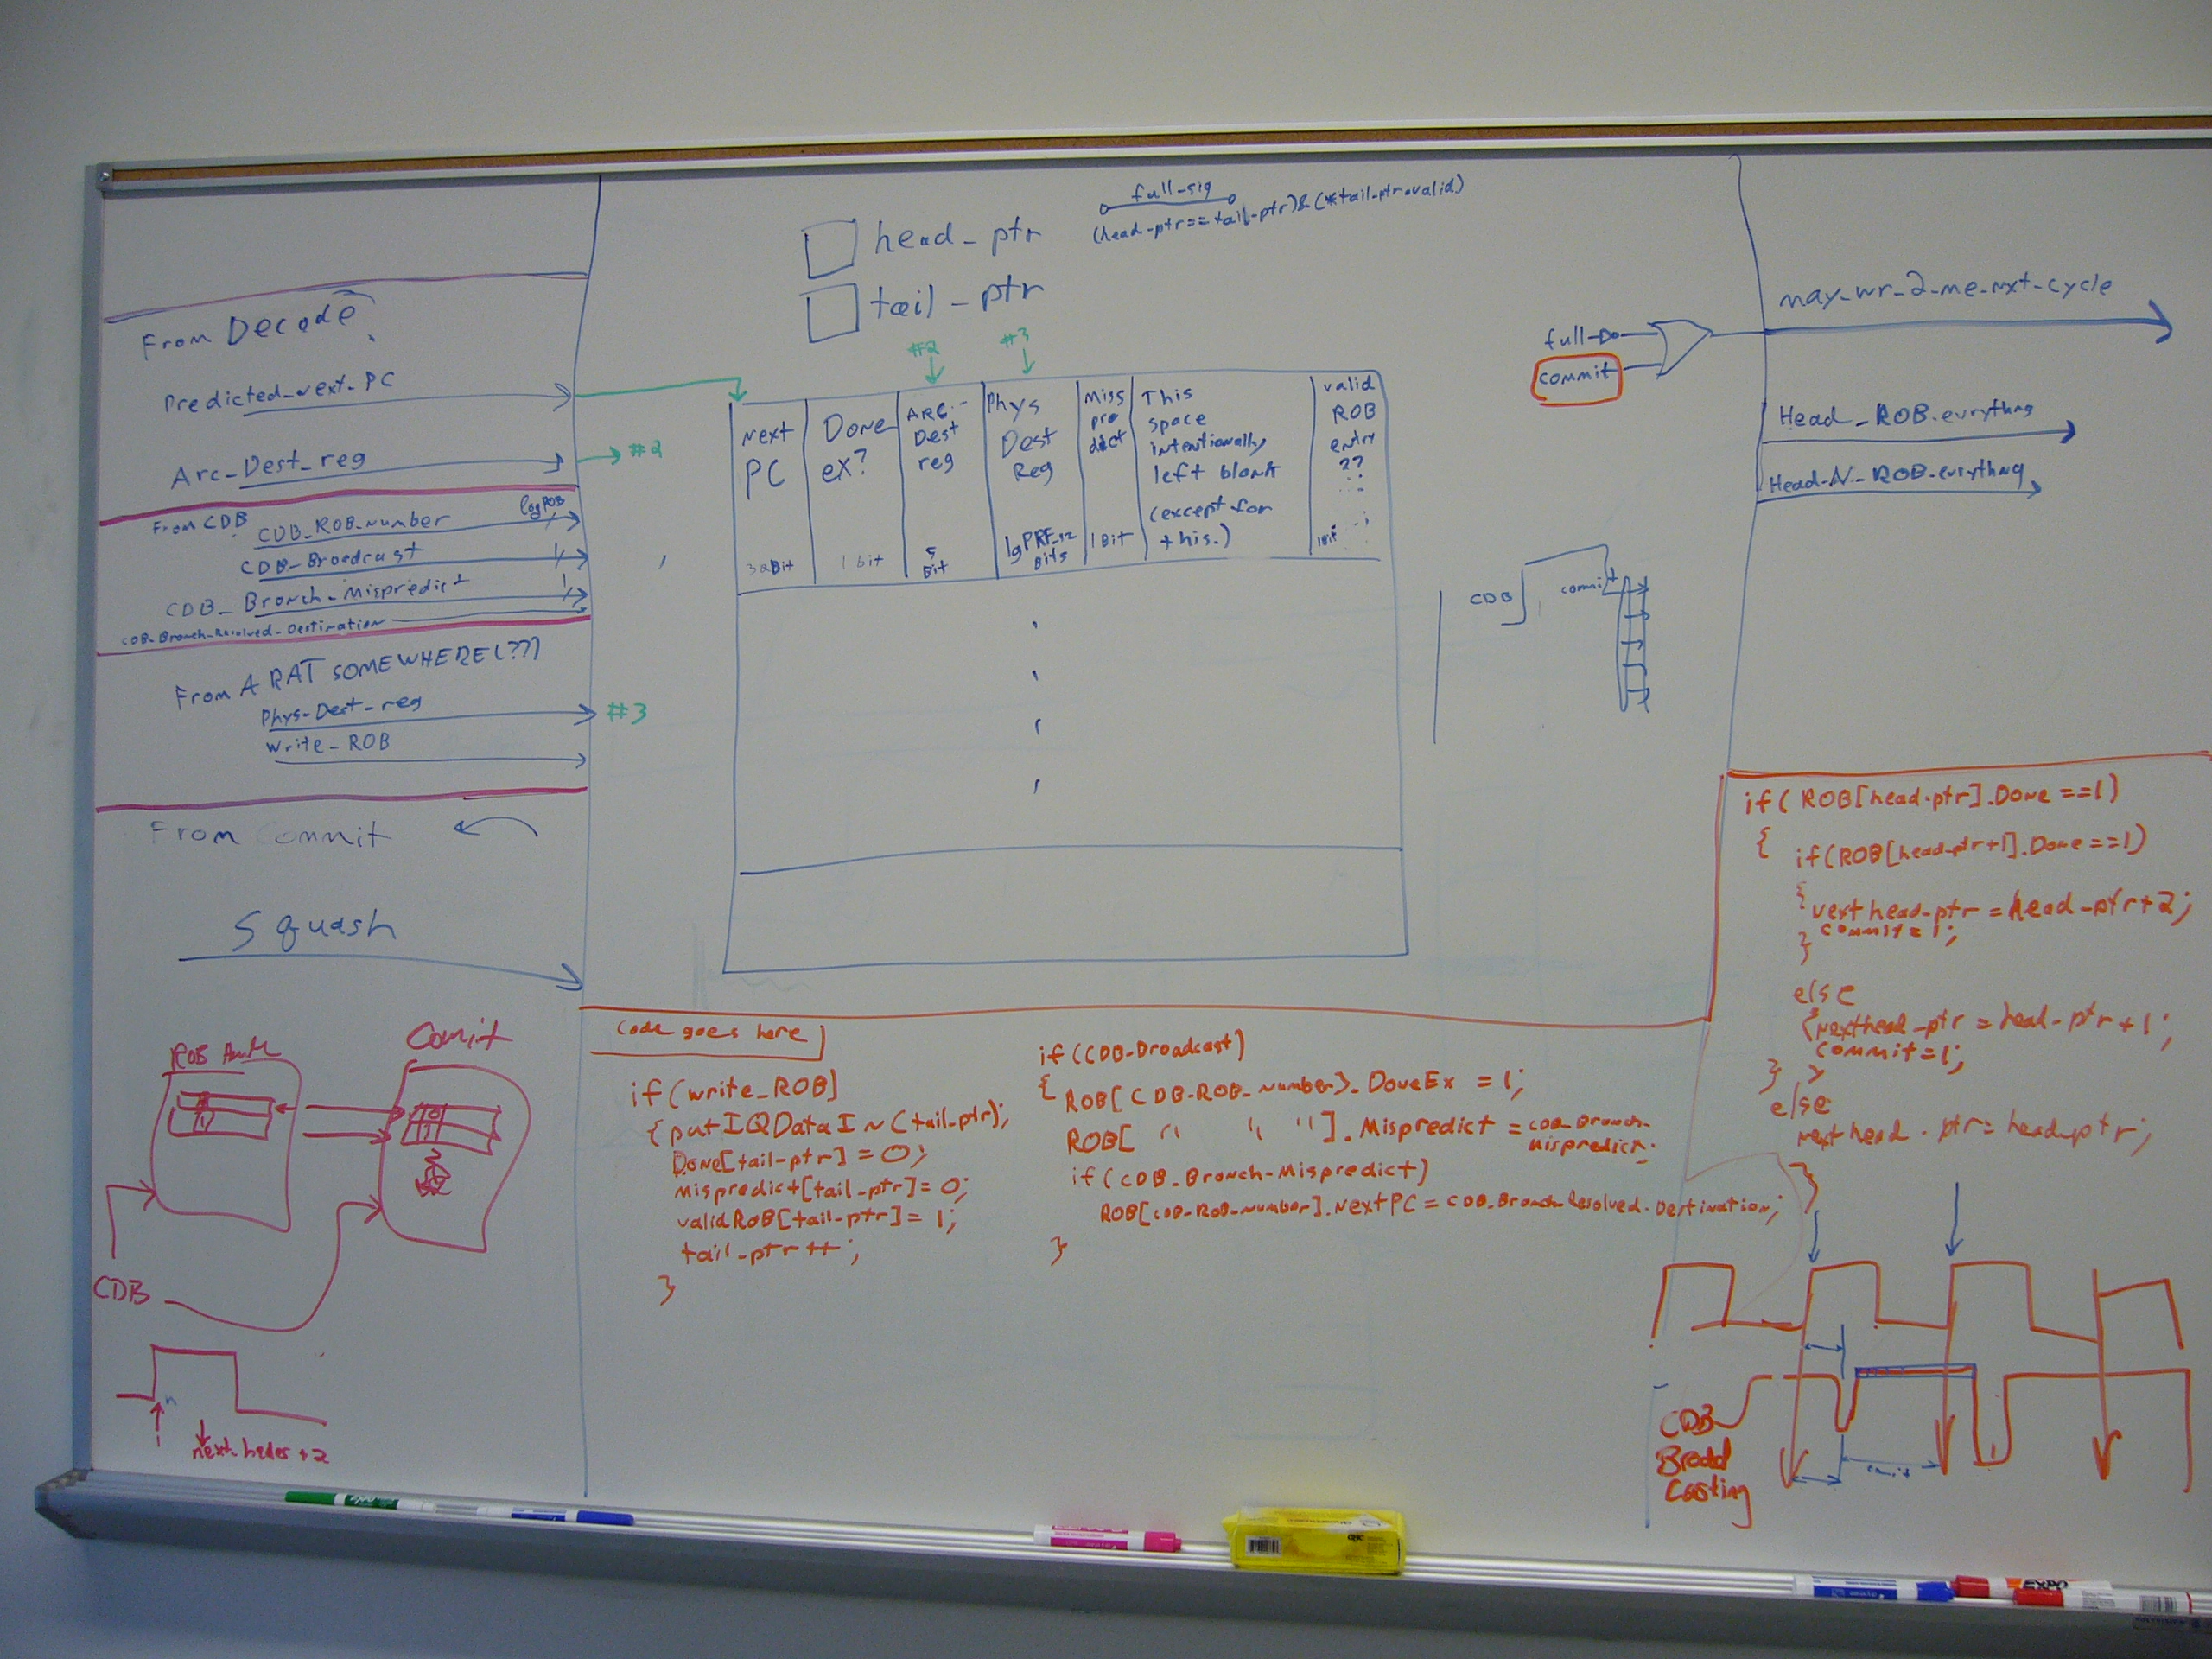 From Decode
Predicted_next_PC
Arc_Dest_reg
#2
From CDB
logROB
CDB_ROB_number
CDB_Broadcast
1
CDB_Branch_Mispredict
1
CDB_Branch_Resolved_Destination
From A RAT SOMEWHERE(??)
Phys_Dest_reg
#3
write_ROB
From Commit
Squash
ROB
Comit
CDB
next_header+2
head_ptr
tail_ptr
full_sig
(head_ptr==tail_ptr)&(*tail_ptr.valid)
#2
#3
Next
PC
32Bit
Done
ex?
1 bit
ARC.-
Dest
reg
5
Bit
Phys
Dest
Reg
lgPRF_12
Bits
Miss
pre
dict
1 Bit
This
space
intentionally
left blank
(except for
this.)
valid
ROB
entry
??
1Bit
full
commit
CDB
commit
may_wr_2_me_nxt_cycle
Head_ROB.evrything
Head_N_ROB.evrything
code goes here
if(write_ROB)
{ putIQDataIn(tail_ptr);
Done[tail_ptr] = 0;
mispredict[tail_ptr]=0;
validROB[tail_ptr]= 1;
tail_ptr++;
}
if(CDB_Broadcast)
{ ROB[CDB_ROB_number].DoneEx = 1;
ROB[ " " "].Mispredict = CDB_Branch_
mispredict;
if(CDB_Branch_Mispredict)
ROB[CDB_ROB_number].NextPC = CDB_Branch_Resolved_Destination;
}
if( ROB[head_ptr].Done ==1)
{ if(ROB[head_ptr+1].Done ==1)
{
next head_ptr = head_ptr+2;
commit=1;
}
else
{nexthead_ptr = head_ptr+1;
commit=1;
} }
else
next head_ptr= head_ptr;
}
CDB
Broad
Casting